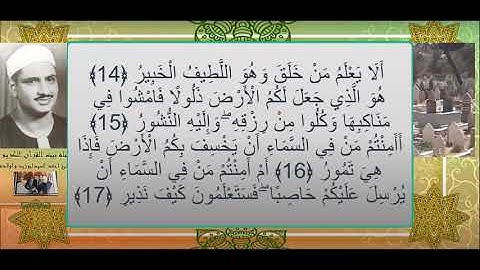 أَلَا يَعْلَمُ مَنْ خَلَقَ وَهُوَ اللَّطِيفُ الْخَبِيرُ ﴿14﴾
هُوَ الَّذِي جَعَلَ لَكُمُ الْأَرْضَ ذَلُولًا فَامْشُوا فِي
مَنَاكِبِهَا وَكُلُوا مِنْ رِزْقِهِ ۖ وَإِلَيْهِ النُّشُورُ ﴿15﴾
أَأَمِنْتُمْ مَنْ فِي السَّمَاءِ أَنْ يَخْسِفَ بِكُمُ الْأَرْضَ فَإِذَا
هِيَ تَمُورُ ﴿16﴾ أَمْ أَمِنْتُمْ مَنْ فِي السَّمَاءِ أَنْ
يُرْسِلَ عَلَيْكُمْ حَاصِبًا ۖ فَسَتَعْلَمُونَ كَيْفَ نَذِيرِ ﴿17﴾